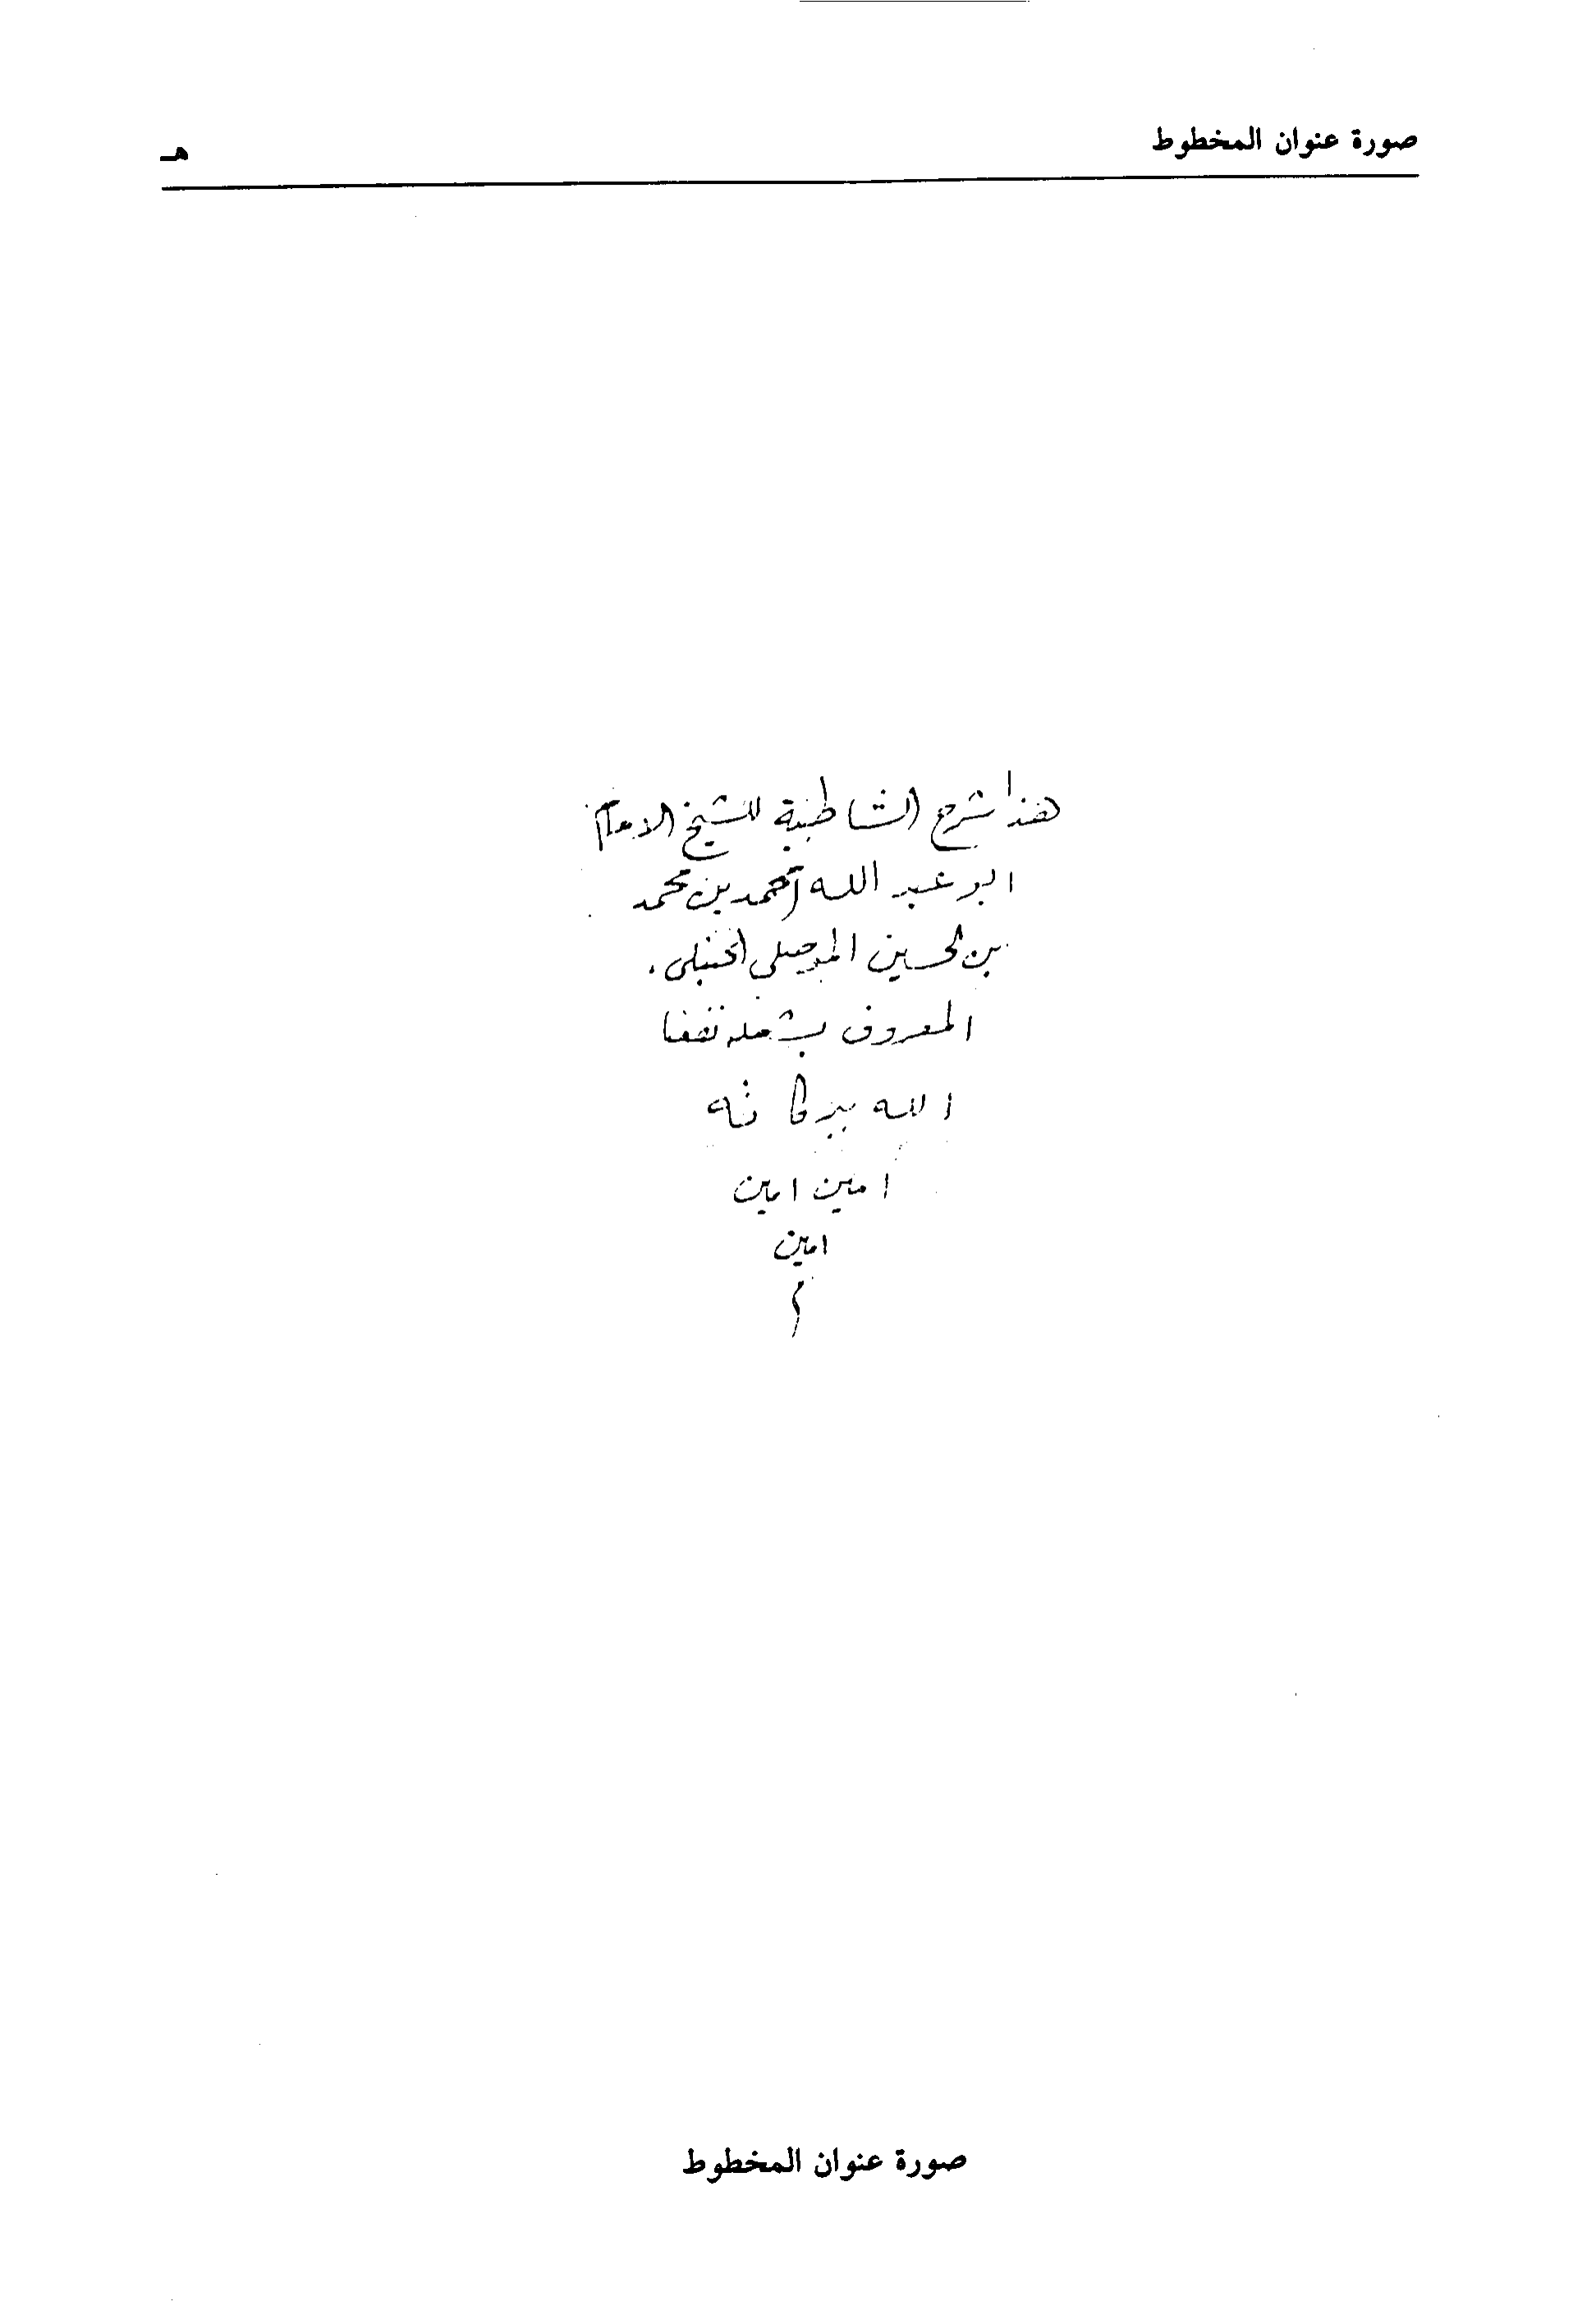 صورة عنوان المخطوط
هـ
هذا شرح الشاطبية للشيخ الامام
ابو عبد الله احمد بن محمد
بن الحسين الموصلى الحنبلى
المعروف بشعله نفعنا
الله ببركاته
امين امين
امين
م
صورة عنوان المخطوط